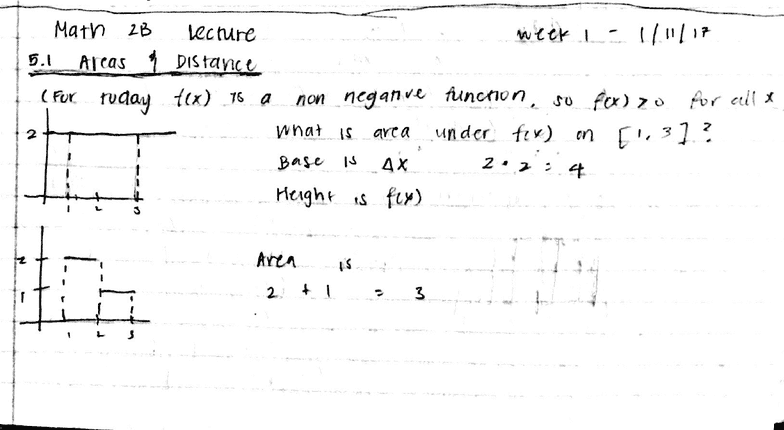 Math 2B Lecture week 1 - 1/11/17
5.1 Areas & Distance
(For today f(x) is a non negative function, so f(x) ≥ 0 for all x
2 What is area under f(x) on [1, 3] ?
Base is Δx 2 · 2 = 4
Height is f(x)
1 2 3
2 Area is
1 2 + 1 = 3
1 2 3